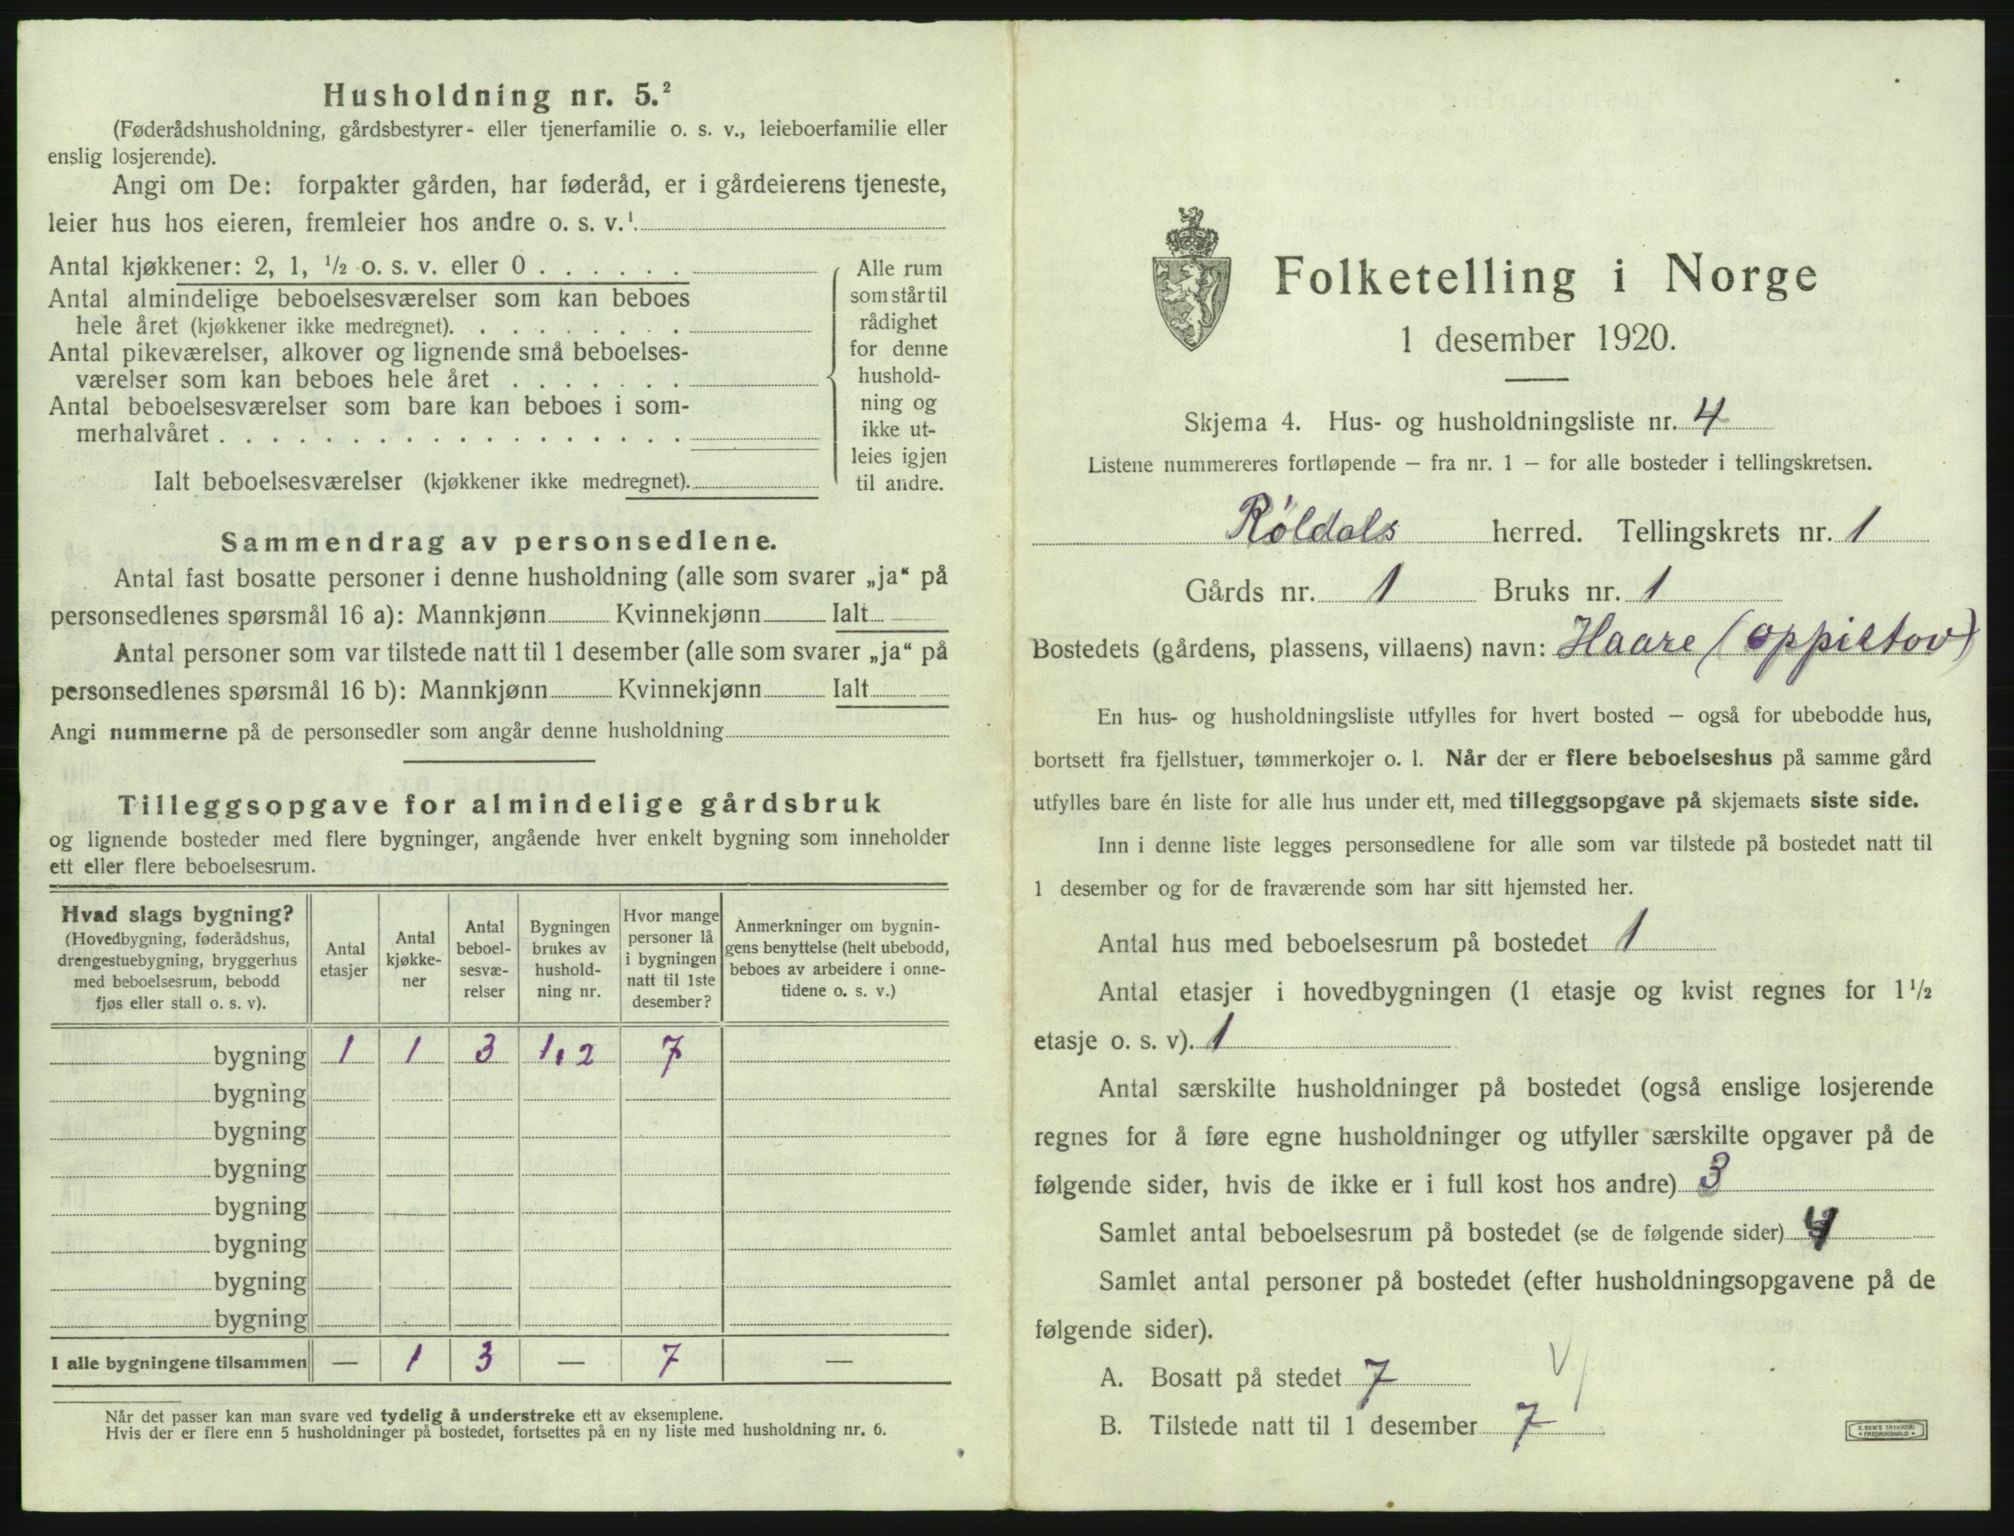 Husholdning nr. 5.²
(Føderådshusholdning, gårdsbestyrer- eller tjenerfamilie o. s. v., leieboerfamilie eller
enslig losjerende).
Angi om De: forpakter gården, har føderåd, er i gårdeierens tjeneste,
leier hus hos eieren, fremleier hos andre o. s. v.¹
Antal kjøkkener: 2, 1, ½ o. s. v. eller 0 . . . . . .
Antal almindelige beboelsesværelser som kan beboes
hele året (kjøkkener ikke medregnet). . . . . . . . .
Antal pikeværelser, alkover og lignende små beboelses-
værelser som kan beboes hele året . . . . . . .
Antal beboelsesværelser som bare kan beboes i som-
merhalvåret . . . . . . . . . . . . . . . . . .
Ialt beboelsesværelser (kjøkkener ikke medregnet).
Alle rum
som står til
rådighet
for denne
hushold-
ning og
ikke ut-
leies igjen
til andre.
Sammendrag av personsedlene.
Antal fast bosatte personer i denne husholdning (alle som svarer „ja“ på
personsedlenes spørsmål 16 a): Mannkjønn Kvinnekjønn Ialt
Antal personer som var tilstede natt til 1 desember (alle som svarer „ja“ på
personsedlenes spørsmål 16 b): Mannkjønn Kvinnekjønn Ialt
Angi nummerne på de personsedler som angår denne husholdning
Tilleggsopgave for almindelige gårdsbruk
og lignende bosteder med flere bygninger, angående hver enkelt bygning som inneholder
ett eller flere beboelsesrum.
Hvad slags bygning?
(Hovedbygning, føderådshus,
drengestuebygning, bryggerhus
med beboelsesrum, bebodd
fjøs eller stall o. s. v).
Antal
etasjer
Antal
kjøkke-
ner
Antal
beboel-
sesvæ-
relser
Bygningen
brukes av
hushold-
ning nr.
Hvor mange
personer lå
i bygningen
natt til 1ste
desember?
Anmerkninger om bygnin-
gens benyttelse (helt ubebodd,
beboes av arbeidere i onne-
tidene o. s. v.)
bygning 1 1 3 1, 2 7
bygning
bygning
bygning
bygning
bygning
bygning
bygning
I alle bygningene tilsammen — 1 3 — 7 —
Når det passer kan man svare ved tydelig å understreke ett av eksemplene.
Hvis der er flere enn 5 husholdninger på bostedet, fortsettes på en ny liste med husholdning nr. 6.
Folketelling i Norge
1 desember 1920.
Skjema 4. Hus- og husholdningsliste nr. 4
Listene nummereres fortløpende – fra nr. 1 – for alle bosteder i tellingskretsen.
Røldals herred. Tellingskrets nr. 1
Gårds nr. 1 Bruks nr. 1
Bostedets (gårdens, plassens, villaens) navn: Haare (oppistov)
En hus- og husholdningsliste utfylles for hvert bosted – også for ubebodde hus,
bortsett fra fjellstuer, tømmerkojer o. l. Når der er flere beboelseshus på samme gård
utfylles bare én liste for alle hus under ett, med tilleggsopgave på skjemaets siste side.
Inn i denne liste legges personsedlene for alle som var tilstede på bostedet natt til
1 desember og for de fraværende som har sitt hjemsted her.
Antal hus med beboelsesrum på bostedet 1
Antal etasjer i hovedbygningen (1 etasje og kvist regnes for 1½
etasje o. s. v). 1
Antal særskilte husholdninger på bostedet (også enslige losjerende
regnes for å føre egne husholdninger og utfyller særskilte opgaver på de
følgende sider, hvis de ikke er i full kost hos andre) 3
Samlet antal beboelsesrum på bostedet (se de følgende sider) 4
Samlet antal personer på bostedet (efter husholdningsopgavene på de
følgende sider).
A. Bosatt på stedet 7
B. Tilstede natt til 1 desember 7